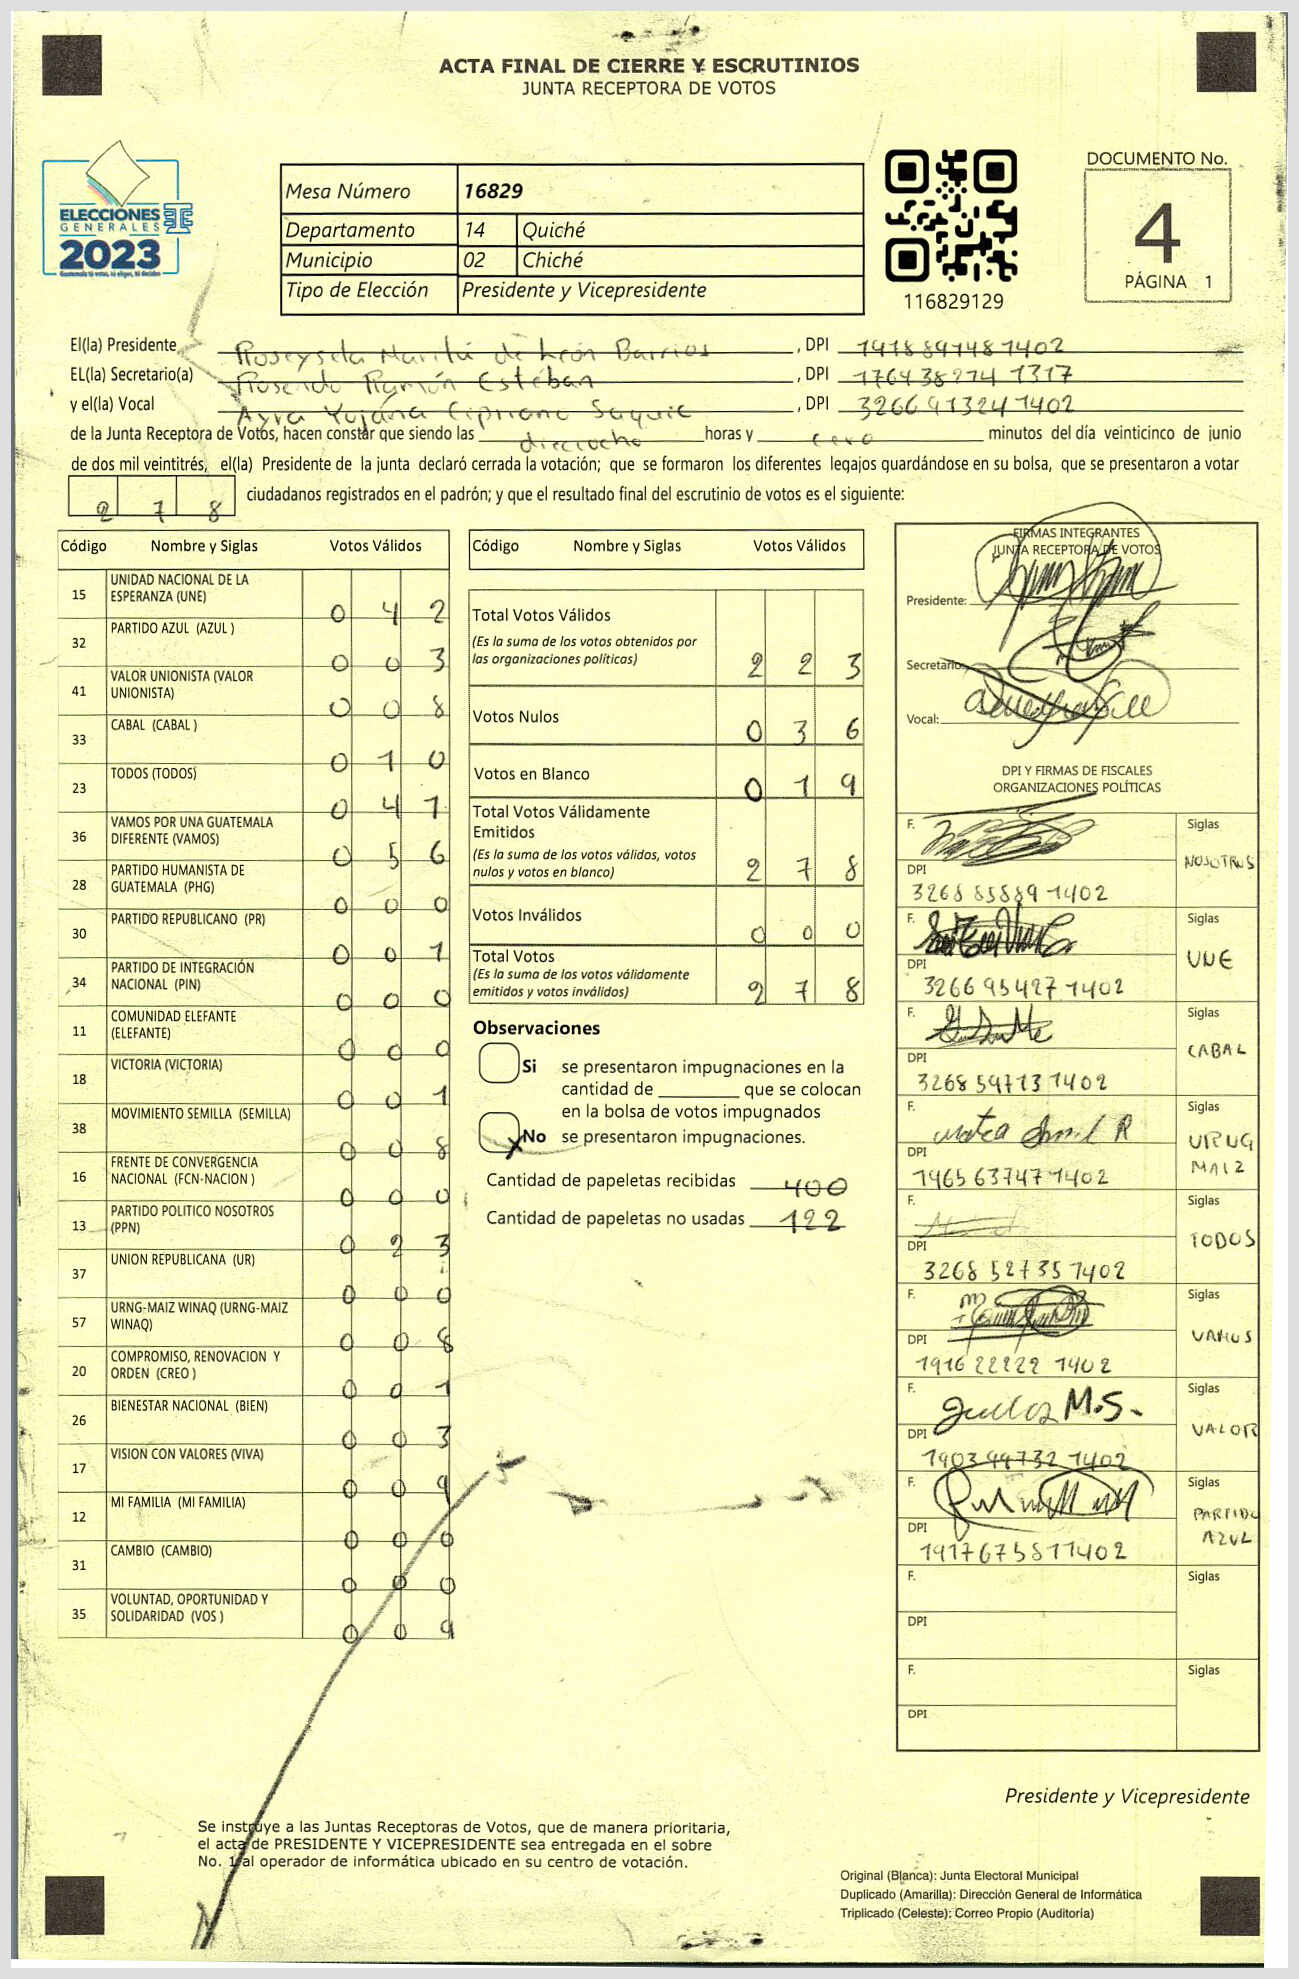 ACTA FINAL DE CIERRE Y ESCRUTINIOS
JUNTA RECEPTORA DE VOTOS
ELECCIONES
GENERALES
2023
Guatemala tú votas, tú eliges, tú decides
Mesa Número 16829
Departamento 14 Quiché
Municipio 02 Chiché
Tipo de Elección Presidente y Vicepresidente
116829129
DOCUMENTO No.
4
PÁGINA 1
El(la) Presidente de León Barrios, DPI 1918891481402
EL(la) Secretario(a) Rosendo Ramón Estéban, DPI 1764382741317
y el(la) Vocal Cipriano Saquic, DPI 3266913241402
de la Junta Receptora de Votos, hacen constar que siendo las dieciocho horas y cero minutos del día veinticinco de junio
de dos mil veintitrés, el(la) Presidente de la junta declaró cerrada la votación; que se formaron los diferentes legajos guardándose en su bolsa, que se presentaron a votar
2 7 8 ciudadanos registrados en el padrón; y que el resultado final del escrutinio de votos es el siguiente:
Código Nombre y Siglas Votos Válidos
15 UNIDAD NACIONAL DE LA ESPERANZA (UNE) 0 4 2
32 PARTIDO AZUL (AZUL ) 0 0 3
41 VALOR UNIONISTA (VALOR UNIONISTA) 0 0 8
33 CABAL (CABAL ) 0 1 0
23 TODOS (TODOS) 0 4 1
36 VAMOS POR UNA GUATEMALA DIFERENTE (VAMOS) 0 5 6
28 PARTIDO HUMANISTA DE GUATEMALA (PHG) 0 0 0
30 PARTIDO REPUBLICANO (PR) 0 0 1
34 PARTIDO DE INTEGRACIÓN NACIONAL (PIN) 0 0 0
11 COMUNIDAD ELEFANTE (ELEFANTE) 0 0 0
18 VICTORIA (VICTORIA) 0 0 1
38 MOVIMIENTO SEMILLA (SEMILLA) 0 0 8
16 FRENTE DE CONVERGENCIA NACIONAL (FCN-NACION ) 0 0 0
13 PARTIDO POLITICO NOSOTROS (PPN) 0 2 3
37 UNION REPUBLICANA (UR) 0 0 0
57 URNG-MAIZ WINAQ (URNG-MAIZ WINAQ) 0 0 8
20 COMPROMISO, RENOVACION Y ORDEN (CREO ) 0 0 1
26 BIENESTAR NACIONAL (BIEN) 0 0 3
17 VISION CON VALORES (VIVA) 0 0 9
12 MI FAMILIA (MI FAMILIA) 0 0 0
31 CAMBIO (CAMBIO) 0 0 0
35 VOLUNTAD, OPORTUNIDAD Y SOLIDARIDAD (VOS ) 0 0 9
Código Nombre y Siglas Votos Válidos
Total Votos Válidos 2 2 3
(Es la suma de los votos obtenidos por
las organizaciones políticas)
Votos Nulos 0 3 6
Votos en Blanco 0 1 9
Total Votos Válidamente
Emitidos 2 7 8
(Es la suma de los votos válidos, votos
nulos y votos en blanco)
Votos Inválidos 0 0 0
Total Votos 2 7 8
(Es la suma de los votos válidamente
emitidos y votos inválidos)
Observaciones
Si se presentaron impugnaciones en la
cantidad de ________ que se colocan
en la bolsa de votos impugnados
X No se presentaron impugnaciones.
Cantidad de papeletas recibidas 400
Cantidad de papeletas no usadas 122
FIRMAS INTEGRANTES
JUNTA RECEPTORA DE VOTOS
Presidente:
Secretario:
Vocal:
DPI Y FIRMAS DE FISCALES
ORGANIZACIONES POLÍTICAS
F. Siglas NOSOTROS
DPI 3268 85889 1402
F. Siglas UNE
DPI 3266 95427 1402
F. Siglas CABAL
DPI 3268 59713 1402
F. Siglas URNG MAIZ
DPI 1965 63747 1402
F. Siglas TODOS
DPI 3268 52735 1402
F. Siglas VAMOS
DPI 1916 22222 1402
F. M.S. Siglas VALOR
DPI 1903 99732 1402
F. Siglas PARTIDO AZUL
DPI 1917675811402
F. Siglas
DPI
F. Siglas
DPI
Presidente y Vicepresidente
Se instruye a las Juntas Receptoras de Votos, que de manera prioritaria,
el acta de PRESIDENTE Y VICEPRESIDENTE sea entregada en el sobre
No. 1 al operador de informática ubicado en su centro de votación.
Original (Blanca): Junta Electoral Municipal
Duplicado (Amarilla): Dirección General de Informática
Triplicado (Celeste): Correo Propio (Auditoría)